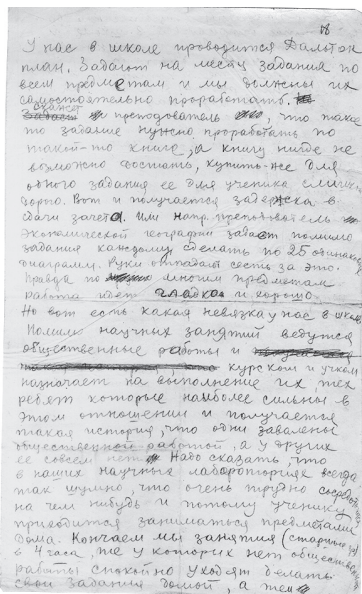 18
У нас в школе проводится Дальтон
план. Задают на месяц задания по
всем предметам и мы должны их
самостоятельно проработать.
скажет
преподователь что, такое
то задание нужно проработать по
такой-то книге, а книгу нигде не
возможно достать, купить-же для
одного задания ее для ученика слишком
дорого. Вот и получается задержка в
сдачи зачета. Или напр. преподователь
экономической географии задает помимо
задания каждому сделать по 25 одинаков
диаграмм. Руки отпадают сесть за это.
Правда по многим предметам
работа идет гладко и хорошо.
Но вот есть какая невязка у нас в школе
Помимо научных занятий ведутся
общественные работы и
курском и учком
назначает на выполнение их тех
ребят которые наиболее сильны в
этом отношении и получается
такая история, что одни завалены
общественной работой, а у других
ее совсем нет. Надо сказать, что
в наших научных лабораториях всегда
так шумно, что очень трудно сосредот
на чем нибудь и потому ученику
приходится заниматься предметами
дома. Кончаем мы занятия (старшие гр)
в 4 часа, те у которых нет обществен
работы спокойно уходят делать
свои задания домой, а те